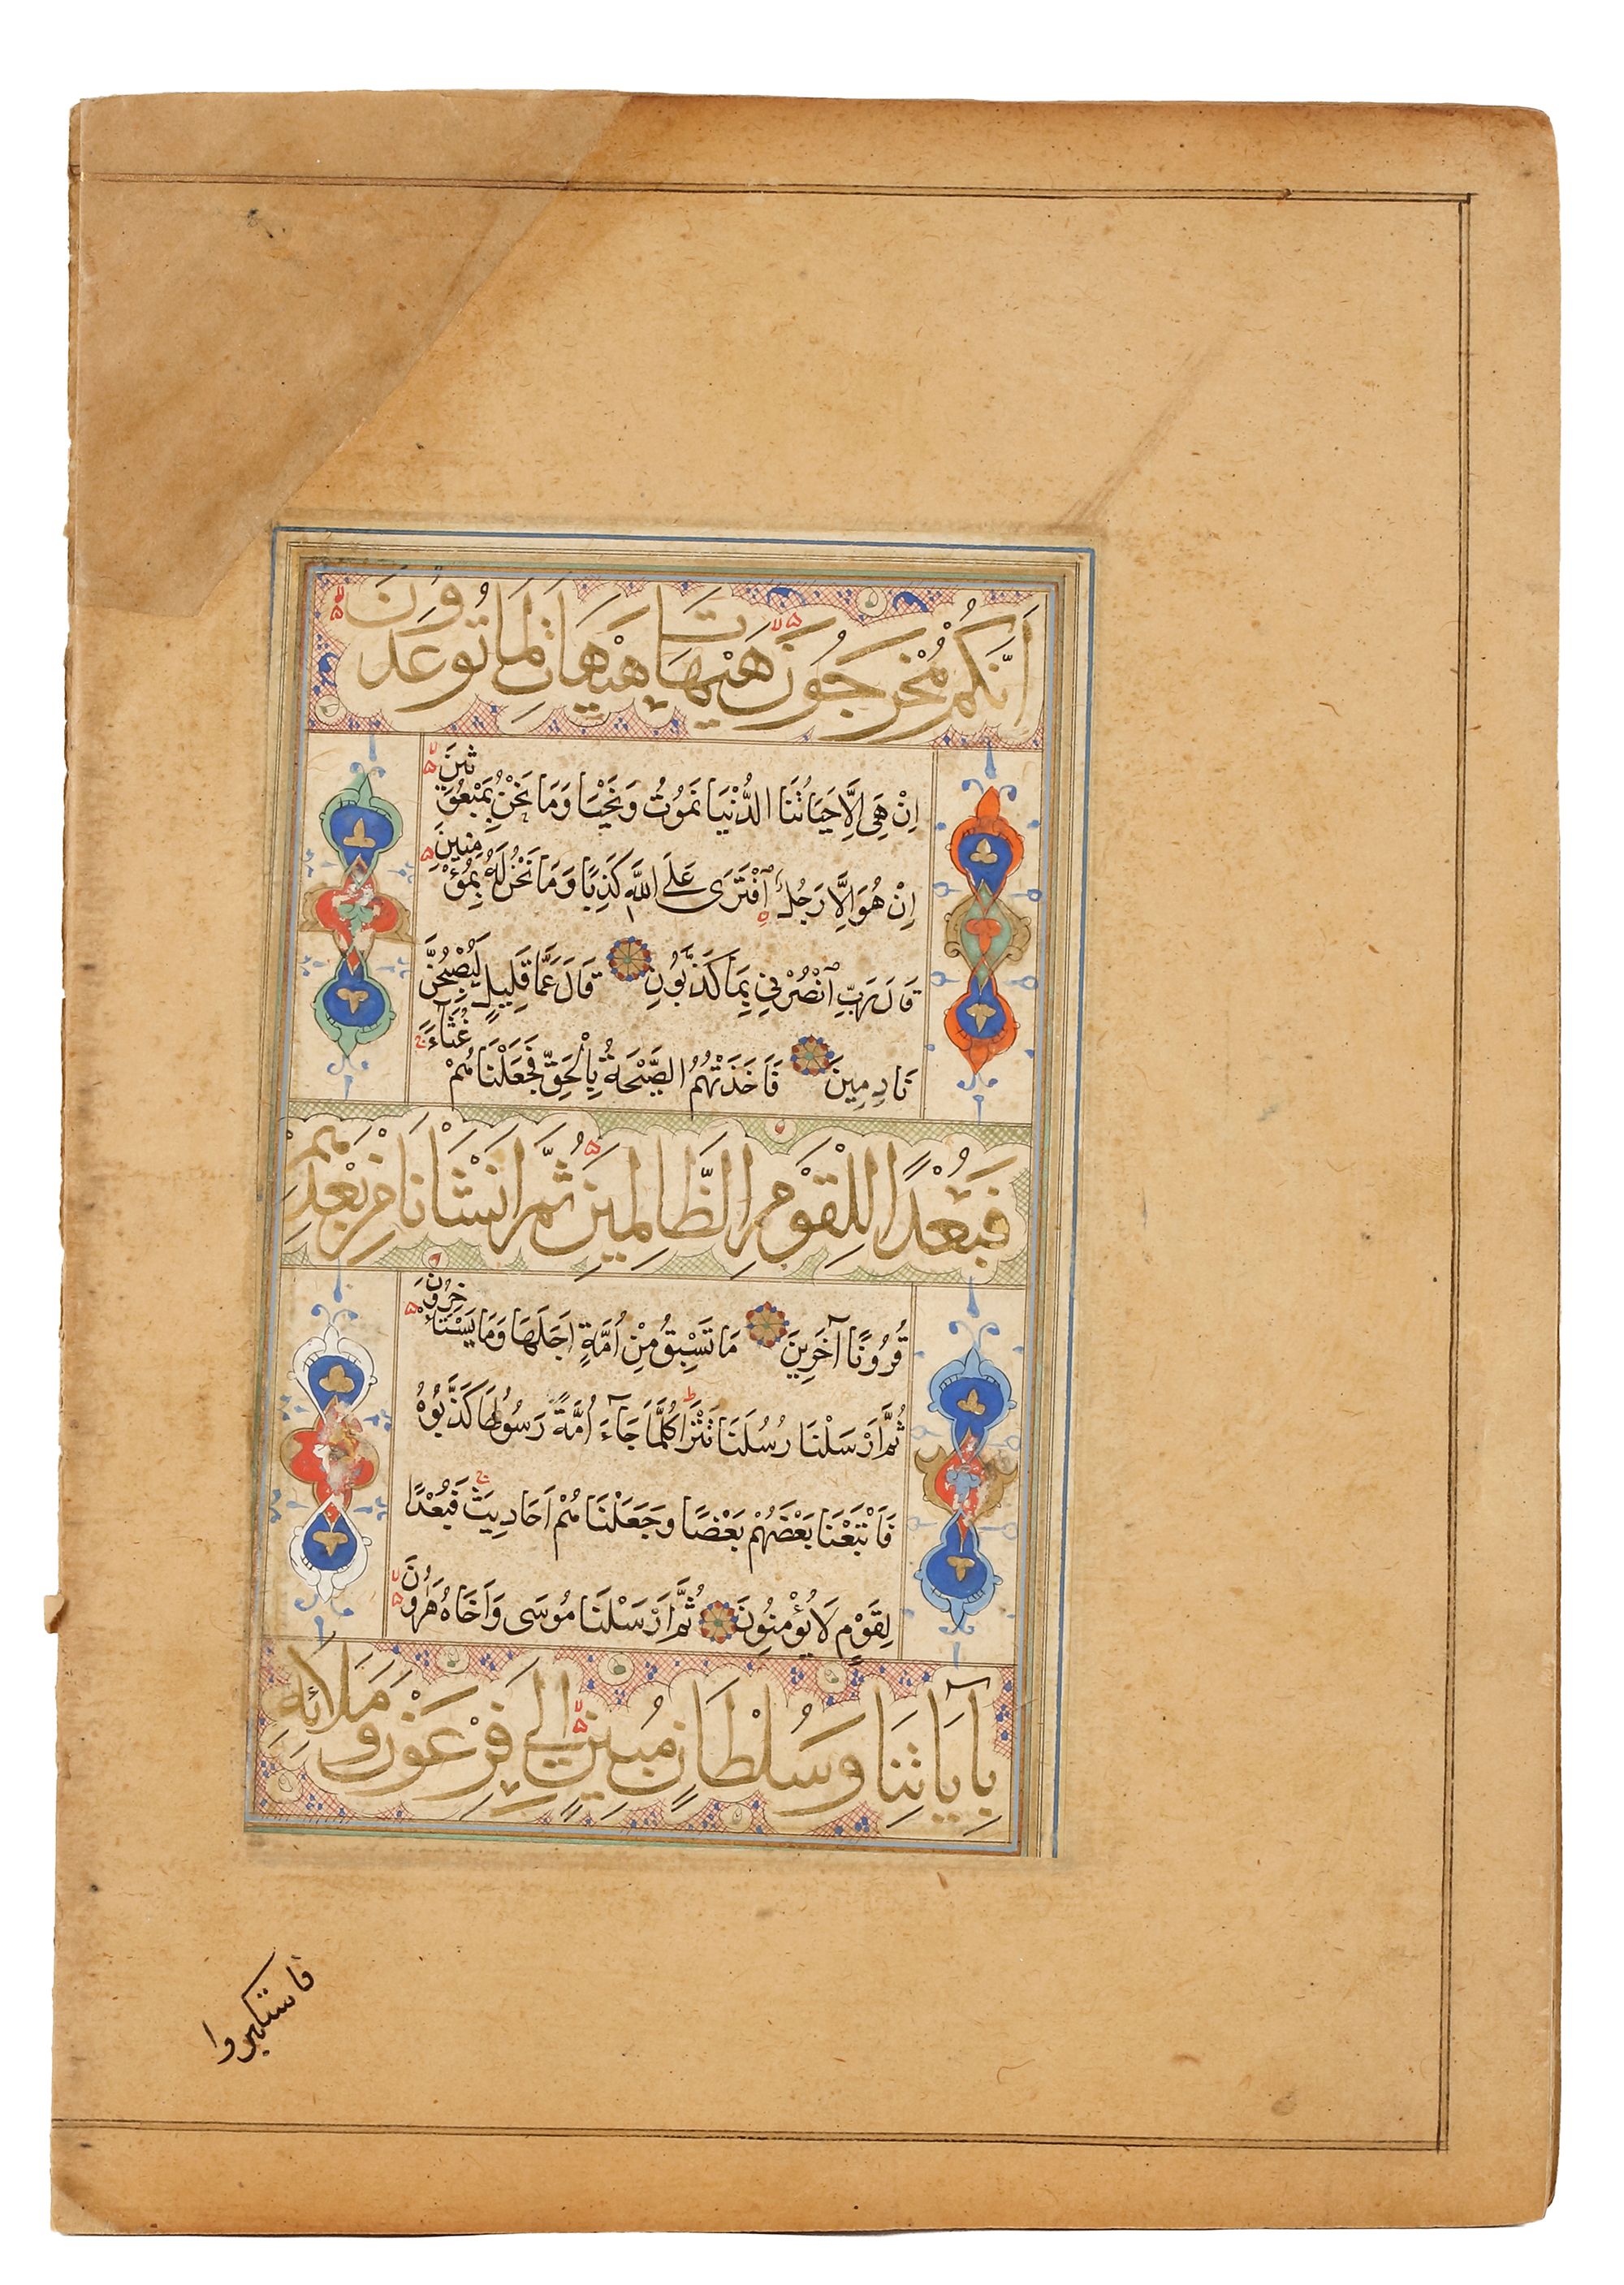 أَنَّكُمْ مُخْرَجُونَ هَيْهَاتَ هَيْهَاتَ لِمَا تُوعَدُونَ
اِنْ هِيَ اِلَّا حَيَاتُنَا الدُّنْيَا نَمُوتُ وَنَحْيَا وَمَا نَحْنُ بِمَبْعُوثِينَ
اِنْ هُوَ اِلَّا رَجُلٌ افْتَرَى عَلَى اللّٰهِ كَذِبًا وَمَا نَحْنُ لَهُ بِمُؤْمِنِينَ
قَالَ رَبِّ انْصُرْنِي بِمَا كَذَّبُونِ قَالَ عَمَّا قَلِيلٍ لَيُصْبِحُنَّ
نَادِمِينَ فَاَخَذَتْهُمُ الصَّيْحَةُ بِالْحَقِّ فَجَعَلْنَاهُمْ غُثَآءً
فَبُعْدًا لِلْقَوْمِ الظَّالِمِينَ ثُمَّ اَنْشَأْنَا مِنْ بَعْدِهِمْ
قُرُونًا آخَرِينَ مَا تَسْبِقُ مِنْ اُمَّةٍ اَجَلَهَا وَمَا يَسْتَأْخِرُونَ
ثُمَّ اَرْسَلْنَا رُسُلَنَا تَتْرَا كُلَّمَا جَآءَ اُمَّةً رَسُولُهَا كَذَّبُوهُ
فَاَتْبَعْنَا بَعْضَهُمْ بَعْضًا وَجَعَلْنَاهُمْ اَحَادِيثَ فَبُعْدًا
لِقَوْمٍ لَا يُؤْمِنُونَ ثُمَّ اَرْسَلْنَا مُوسَى وَاَخَاهُ هٰرُونَ
بِآيَاتِنَا وَسُلْطَانٍ مُبِينٍ اِلَى فِرْعَوْنَ وَمَلَائِهِ
فاستكبروا